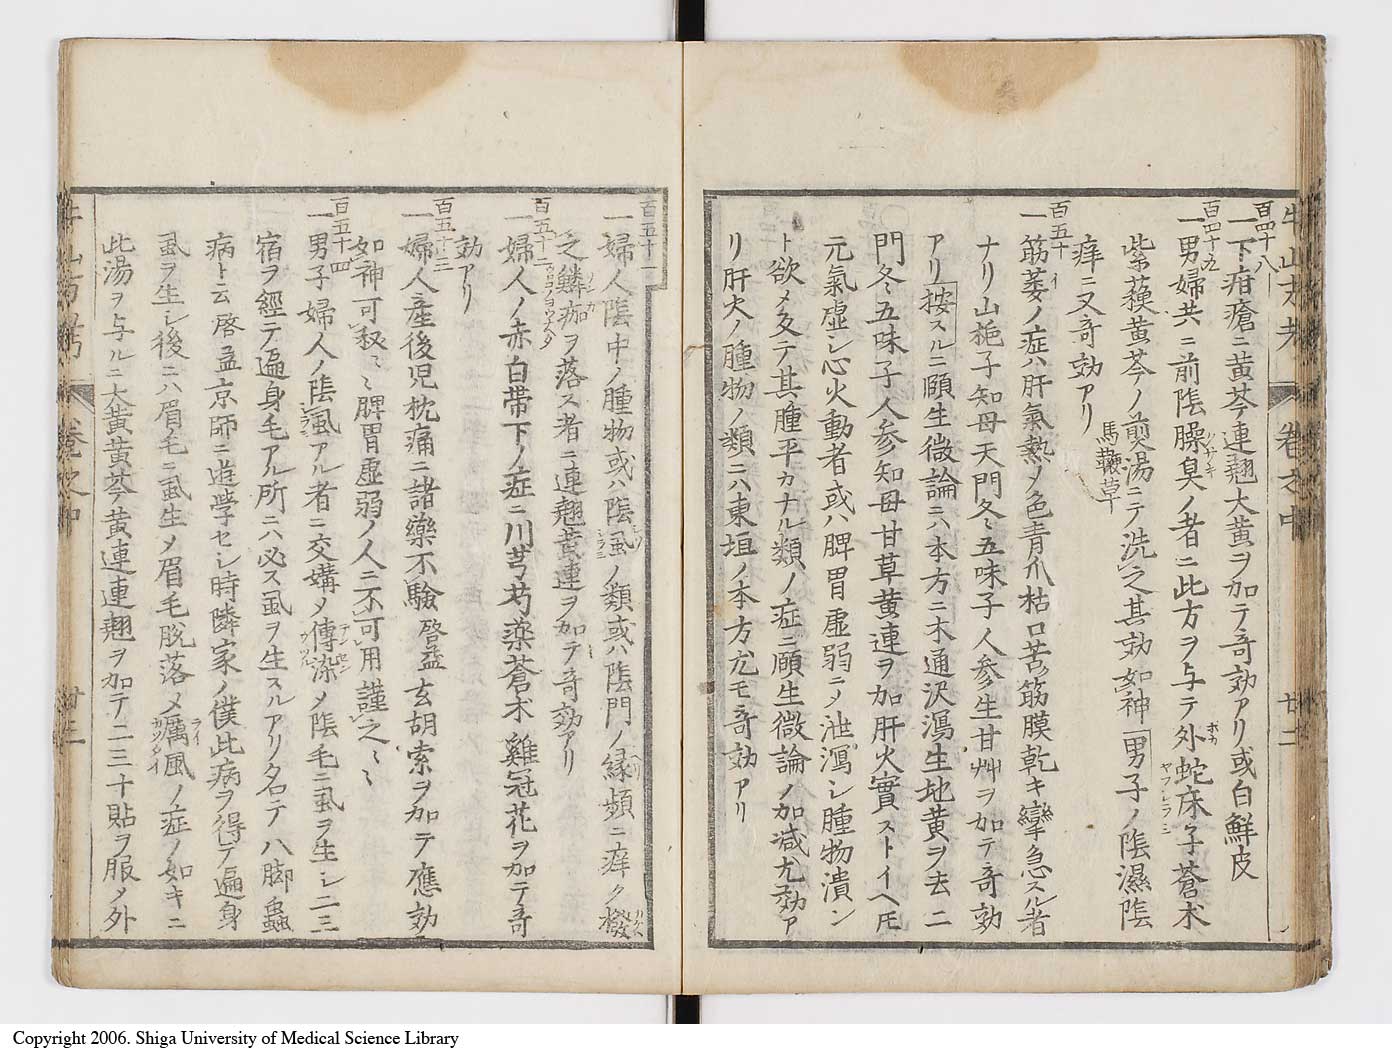 牛山方考 卷之中 廿二
百四十八
一下疳瘡ニ黄芩連翹大黄ヲ加テ奇効アリ或白鮮皮
百四十九
一男婦共ニ前陰臊臭ノ者ニ此方ヲ与テ外蛇床子蒼朮
紫蘓黄芩ノ煎湯ニテ洗之其効如神男子ノ陰濕陰
痒ニ又奇効アリ 馬鞭草
百五十
一筋萎ノ症ハ肝氣熱メ色青爪枯口苦筋膜乾キ攣急スル者
ナリ山梔子知母天門冬五味子人参生甘艸ヲ加テ奇効
アリ按スルニ頤生微論ニハ本方ニ木通沢瀉生地黄ヲ去ニ
門冬五味子人参知母甘草黄連ヲ加肝火實ストイヘ𪜈
元氣虚シ心火動者或ハ脾胃虚弱ニメ泄瀉シ腫物潰ン
ト欲メ反テ其腫平カナル類ノ症ニ頤生微論ノ加减尤効ア
リ肝火ノ腫物ノ類ニハ東垣ノ本方尤モ奇効アリ
百五十一
一婦人陰中ノ腫物或ハ陰虱ノ類或ハ陰門ノ縁頻ニ痒ク撥
之鱗痂ヲ落ス者ニ連翹黄連ヲ加テ奇効アリ
百五十二
一婦人ノ赤白帯下ノ症ニ川芎芍薬蒼朮雞冠花ヲ加テ奇
効アリ
百五十三
一婦人産後児枕痛ニ諸藥不驗啓益玄胡索ヲ加テ應効
如神可秘ミミ脾胃虚弱ノ人ニ不可用謹之ミミ
百五十四
一男子婦人ノ陰虱アル者ニ交媾メ傳染メ陰毛ニ虱ヲ生シ二三
宿ヲ經テ遍身毛アル所ニハ必ス虱ヲ生スルアリ名テ八脚蟲
病ト云啓益京師ニ遊学セシ時隣家ノ僕此病ヲ得テ遍身
虱ヲ生シ後ニハ眉毛ニ虱生メ眉毛脱落メ癘風ノ症ノ如キニ
此湯ヲ与ルニ大黄黄芩黄連連翹ヲ加テ二三十貼ヲ服メ外
牛山方考 卷之中 廿三
Copyright 2006. Shiga University of Medical Science Library